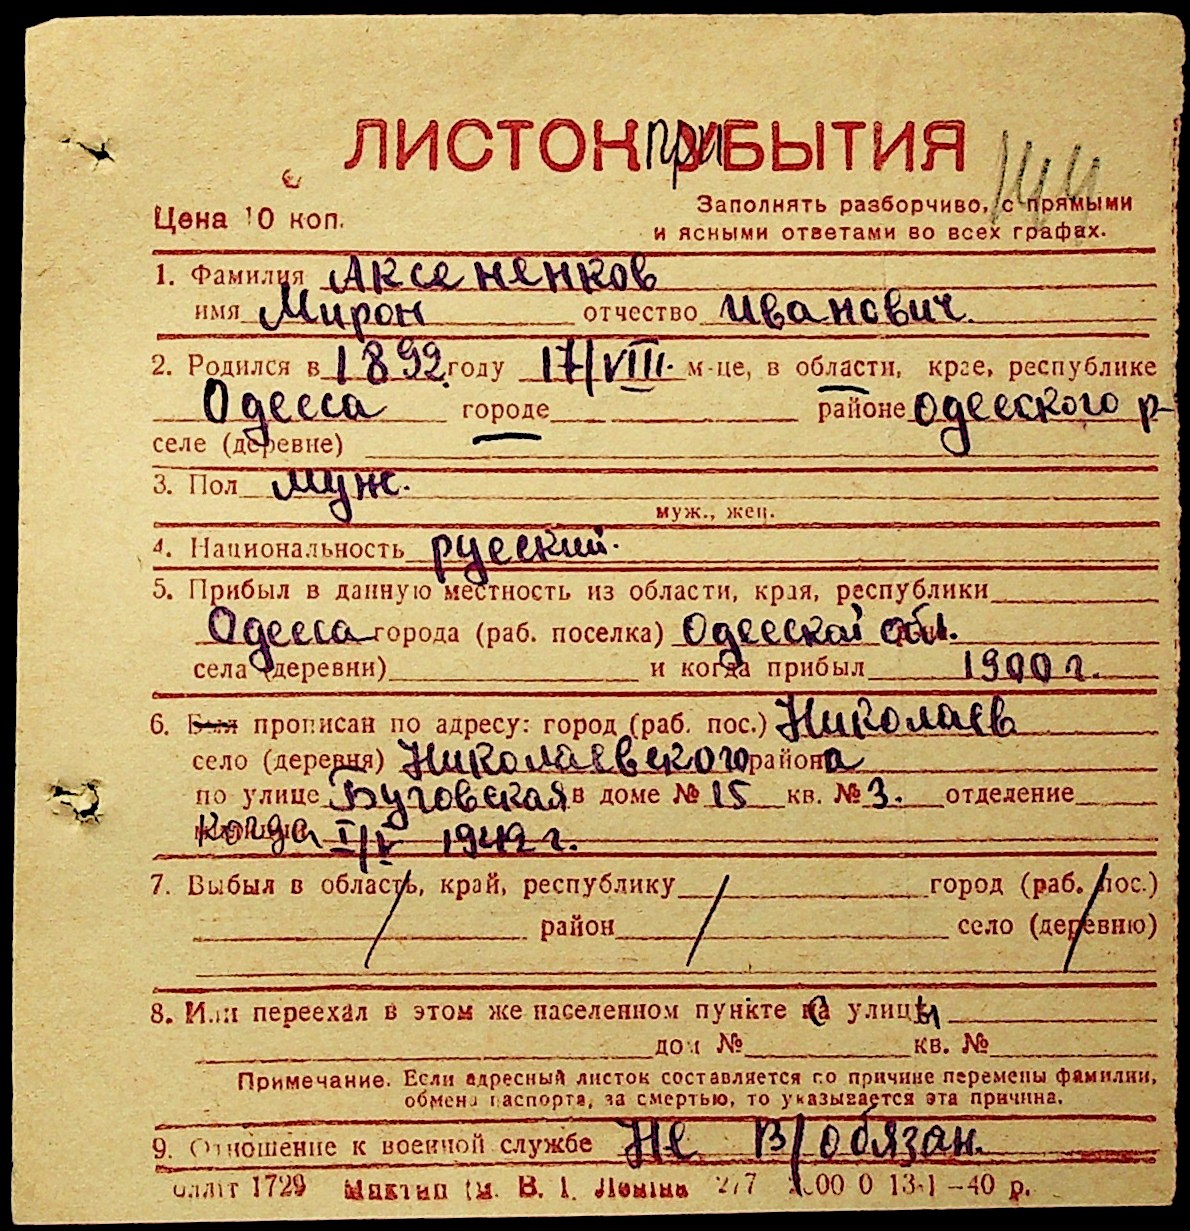 ЛИСТОК прИБЫТИЯ
144
Цена 10 коп.
Заполнять разборчиво, с прямыми
и ясными ответами во всех графах.
1. Фамилия Аксененков
имя Мирон отчество Иванович.
2. Родился в 1892 году 17/VIII. м-це, в области, крае, республике
Одесса городе районе Одесского р-
селе (деревне)
3. Пол муж.
муж., жен.
4. Национальность русский.
5. Прибыл в данную местность из области, края, республики
Одесса города (раб. поселка) Одесской обл.
села (деревни) и когда прибыл 1900 г.
6. Был прописан по адресу: город (раб. пос.) Николаев
село (деревня) Николаевского района
по улице Буговская в доме № 15 кв. № 3. отделение
когда I/V 1942 г.
7. Выбыл в область, край, республику город (раб. пос.)
район село (деревню)
8. Или переехал в этом же населенном пункте с улицы
дом № кв. №
Примечание. Если адресный листок составляется по причине перемены фамилии,
обмена паспорта, за смертью, то указывается эта причина.
9. Отношение к военной службе Не в/обязан.
1729 им. В. І. Леніна 277 13-1-40 р.